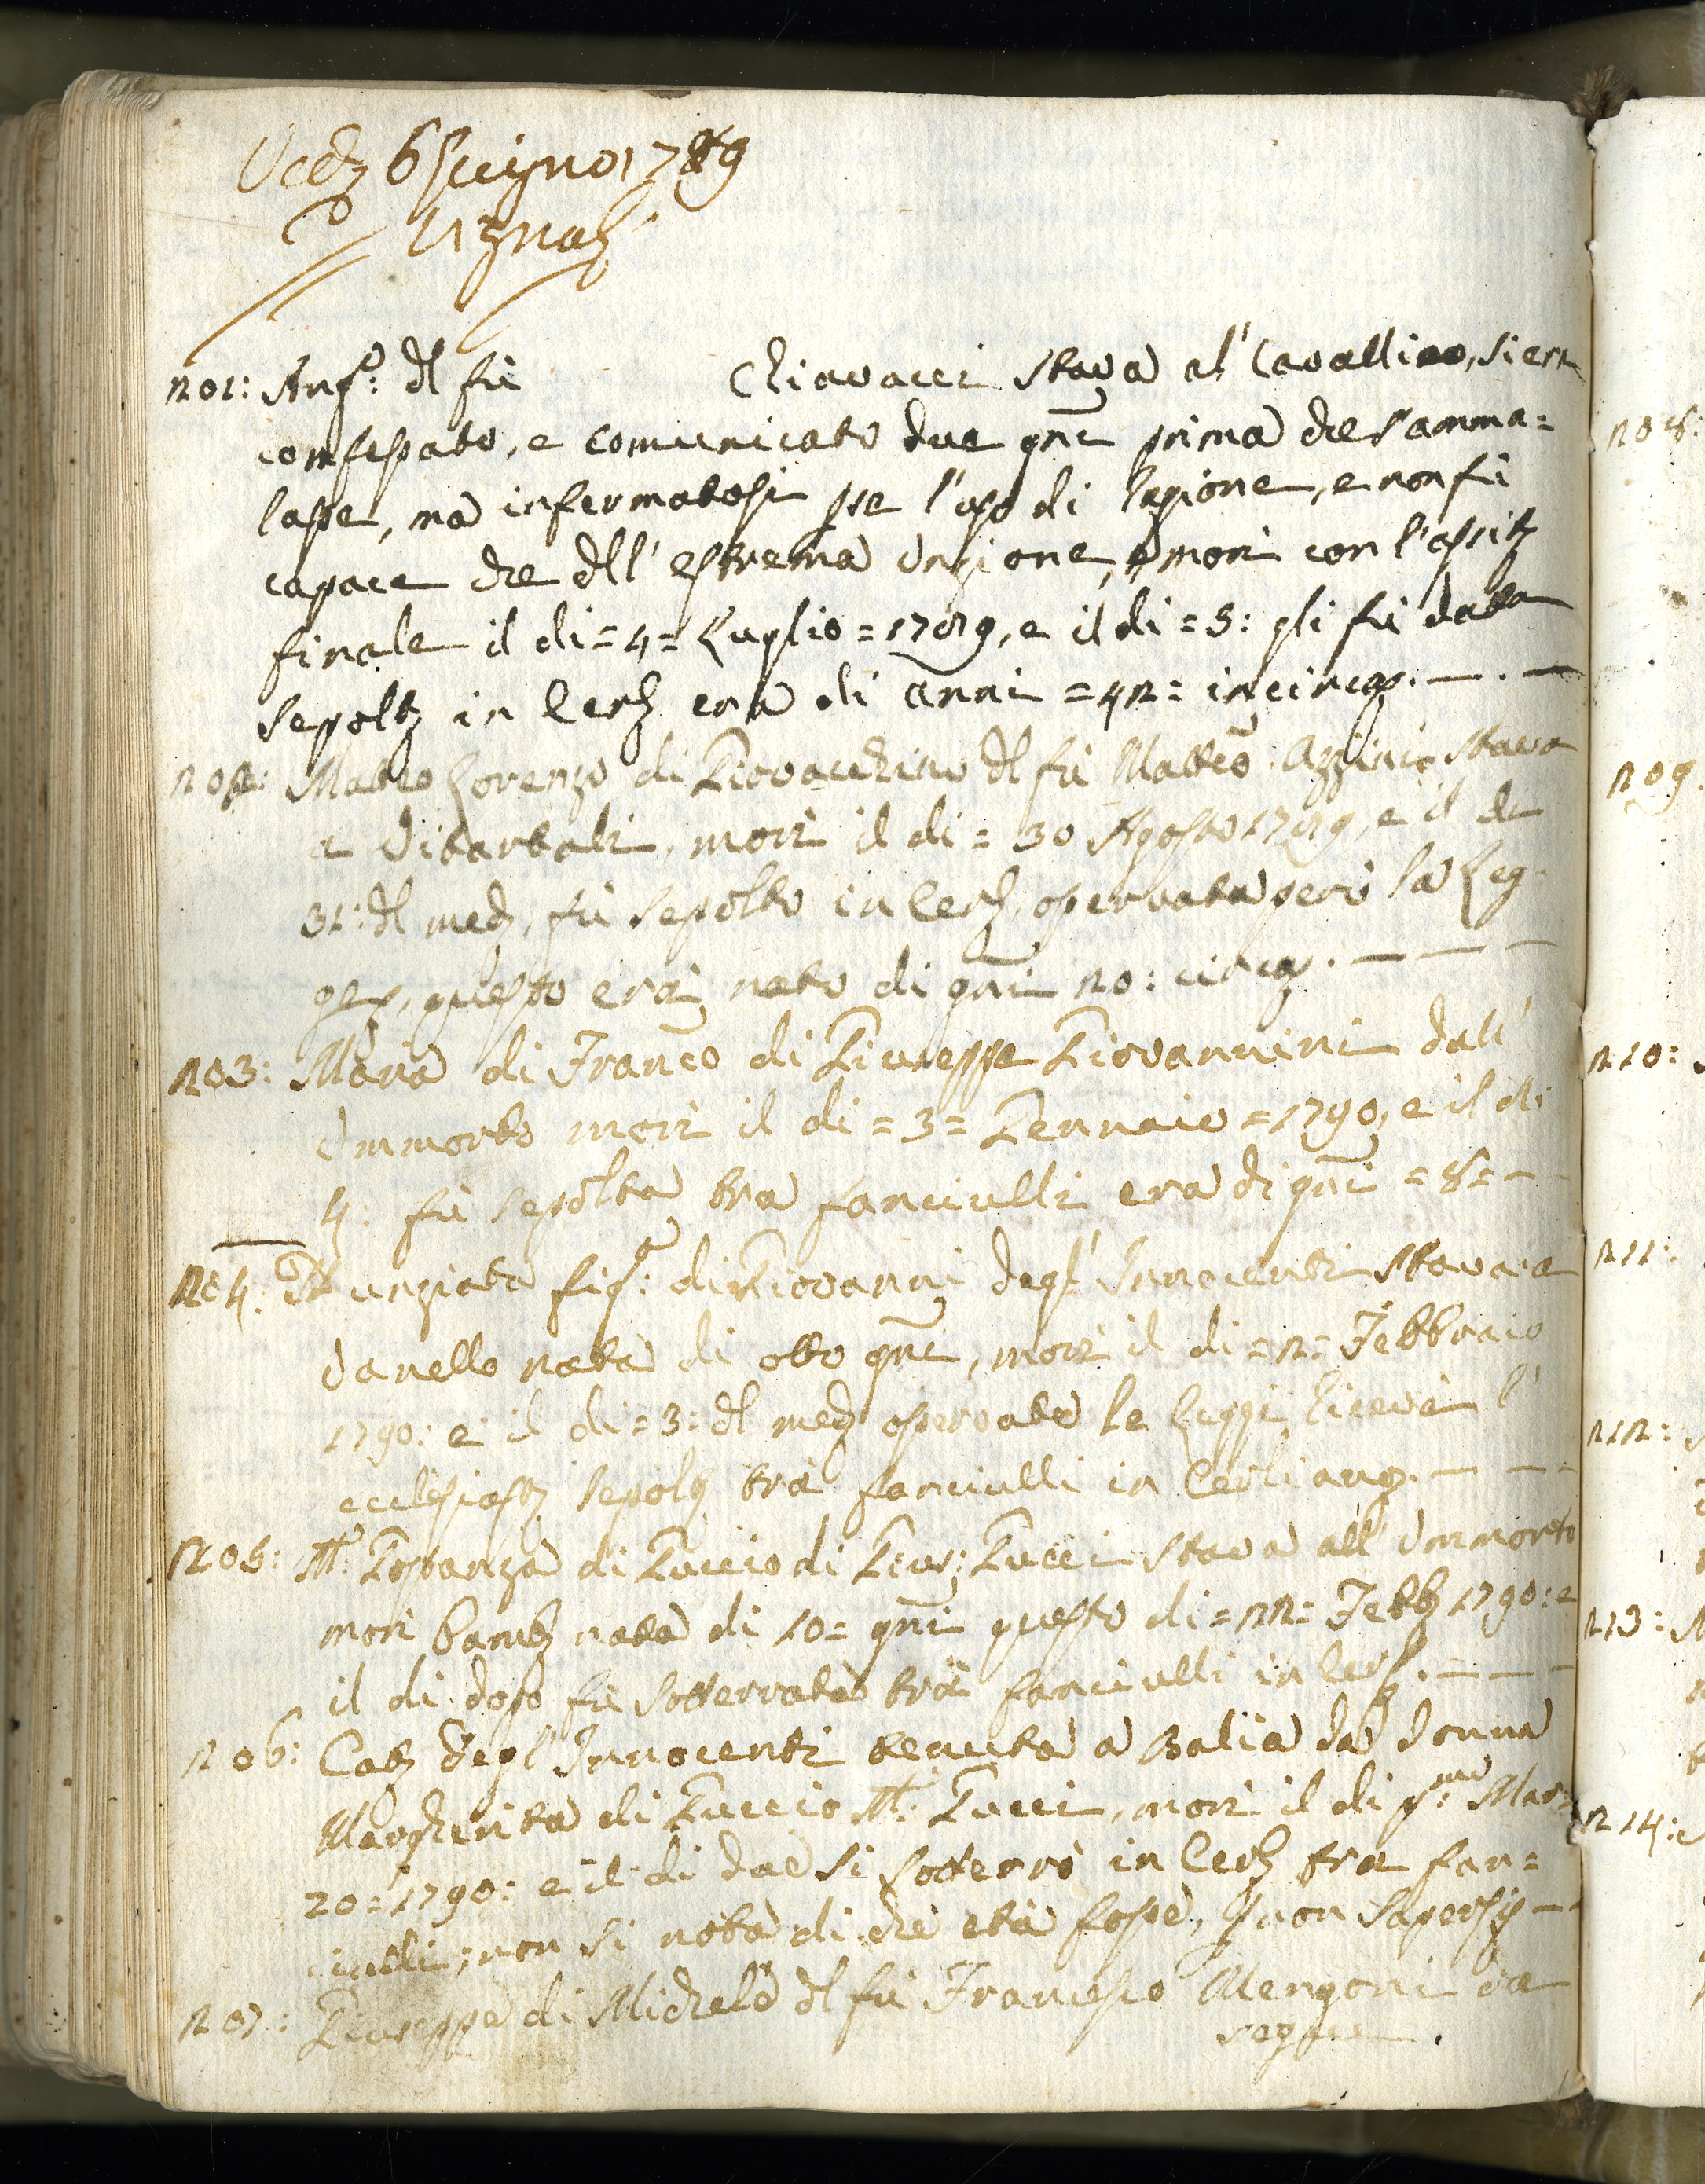 6 Giugno 1789
201: Ang:o del fù Chiavacci stava al' Cavallino, si era
confessato, e comunicato due gni prima che s'amma=
lasse, ma infermatosi pse l'uso di ragione, e non fù
capace che dell' estrema Unzione, e morì con l'assitz
finale il di = 4 = Luglio = 1789, e il di = 5: gli fù data
sepoltz in Cerz era di anni = 42 = in circa. — . —
202: Matteo Lorenzo di Giovacchino del fù Matteo Azzini stava
a Vitartali, morì il di = 30 Agosto 1789, e il di
31: del medz, fù sepolto in Cerz, osservata però la Leg-
ge, questo era nato di gni 20: circa. — — —
203: Maria di Franco di Giuseppe Giovannini dall'
Ommorto morì il di = 3 = Gennaio = 1790, e il di
4: fù sepolta tra fanciulli era di gni = 8 = —
204: Nunziata fig:a di Giovanni degl' Innocenti stava a
Vanello nata di otto gni, morì il di = 2 = Febbraio
1790: e il di = 3: del medz osservate le Leggi ricevè l'
ecclesiastz sepolz tra fanciulli in Cerliano. — — —
205: M: Costanza di Guccio di Gius: Gucci stava all' Ommorto
morì bambz nata di 10 = gni questo di = 22 = Febbz 1790: e
il di dopo fù sotterrata tra fanciulli in Cerz. — — —
206: Catz degl' Innocenti tenuta a Balia da Donna
Margherita di Guccio M: Gucci, morì il di p:mo Mar=
zo = 1790: e il di due si sotterrò in Cerz tra fan=
ciulli; non si nota di che età fosse, p non sapersi —
207: Giuseppe di Michele del fù Francesco Mengoni da
segue.
208:
209.
210:
211:
212:
213:
214: